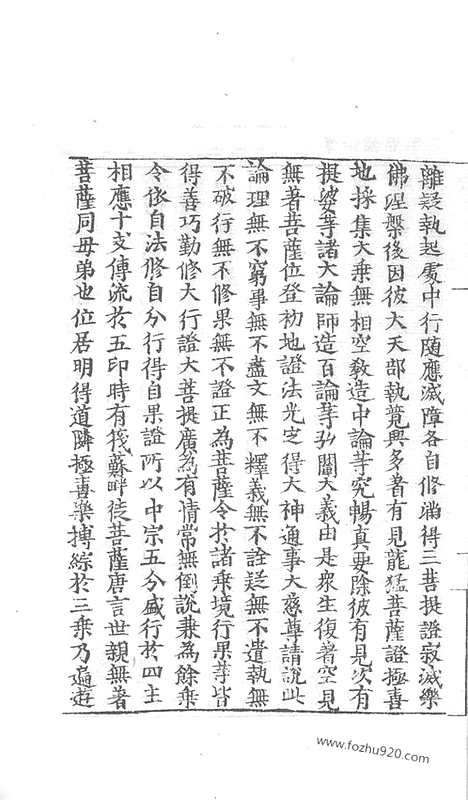 離疑執起處中行隨應滅障各自修滿得三菩提證寂滅樂
佛涅槃後因彼大天部執競興多著有見龍猛菩薩證極喜
地採集大乘無相空教造中論等究暢真要除彼有見次有
提婆等諸大論師造百論等弘闡大義由是衆生復著空見
無著菩薩位登初地證法光定得大神通事大慈尊請說此
論理無不窮事無不盡文無不釋義無不詮疑無不遣執無
不破行無不修果無不證正為菩薩令於諸乘境行果等皆
得善巧勤修大行證大菩提廣為有情常無倒說兼為餘乘
令依自法修自分行得自果證所以中宗五分盛行於四主
相應十支傳流於五印時有筏蘇畔徒菩薩唐言世親無著
菩薩同母弟也位居明得道隣極喜樂搏綜於三乘乃遍遊
www.fozhu920.com